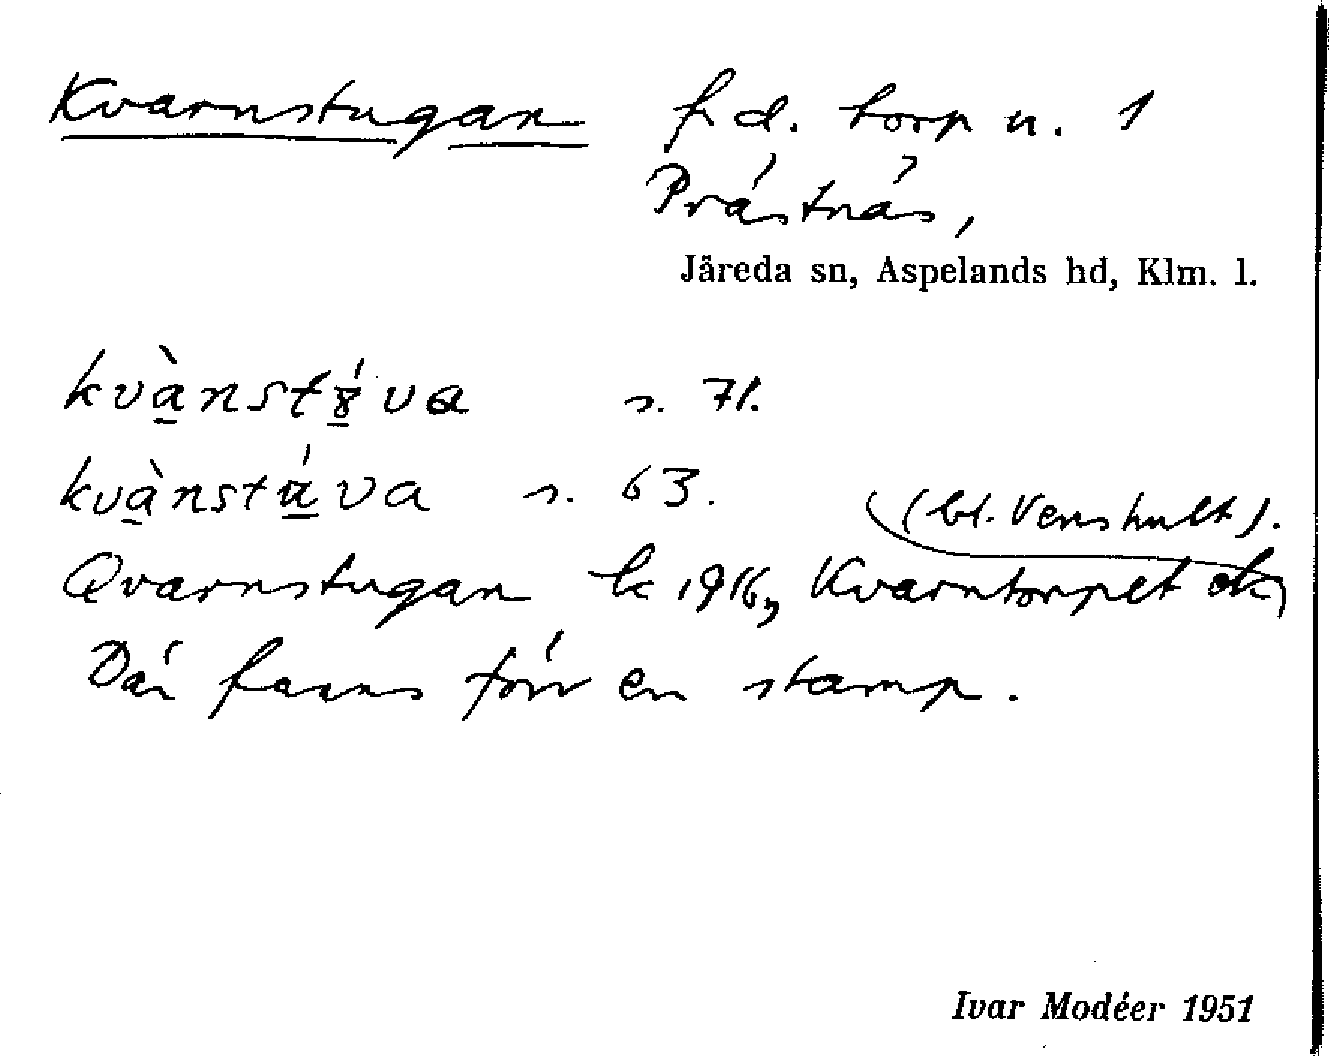 Kvarnstugan f. d. torp u. 1
Prästnäs,
Järeda sn, Aspelands hd, Klm. l.
s. 71.
s. 63.
(bl. Venshult).
Qvarnstugan k 1916, Kvarntorpet ek,
Där fanns förr en stamp.
Ivar Modéer 1951